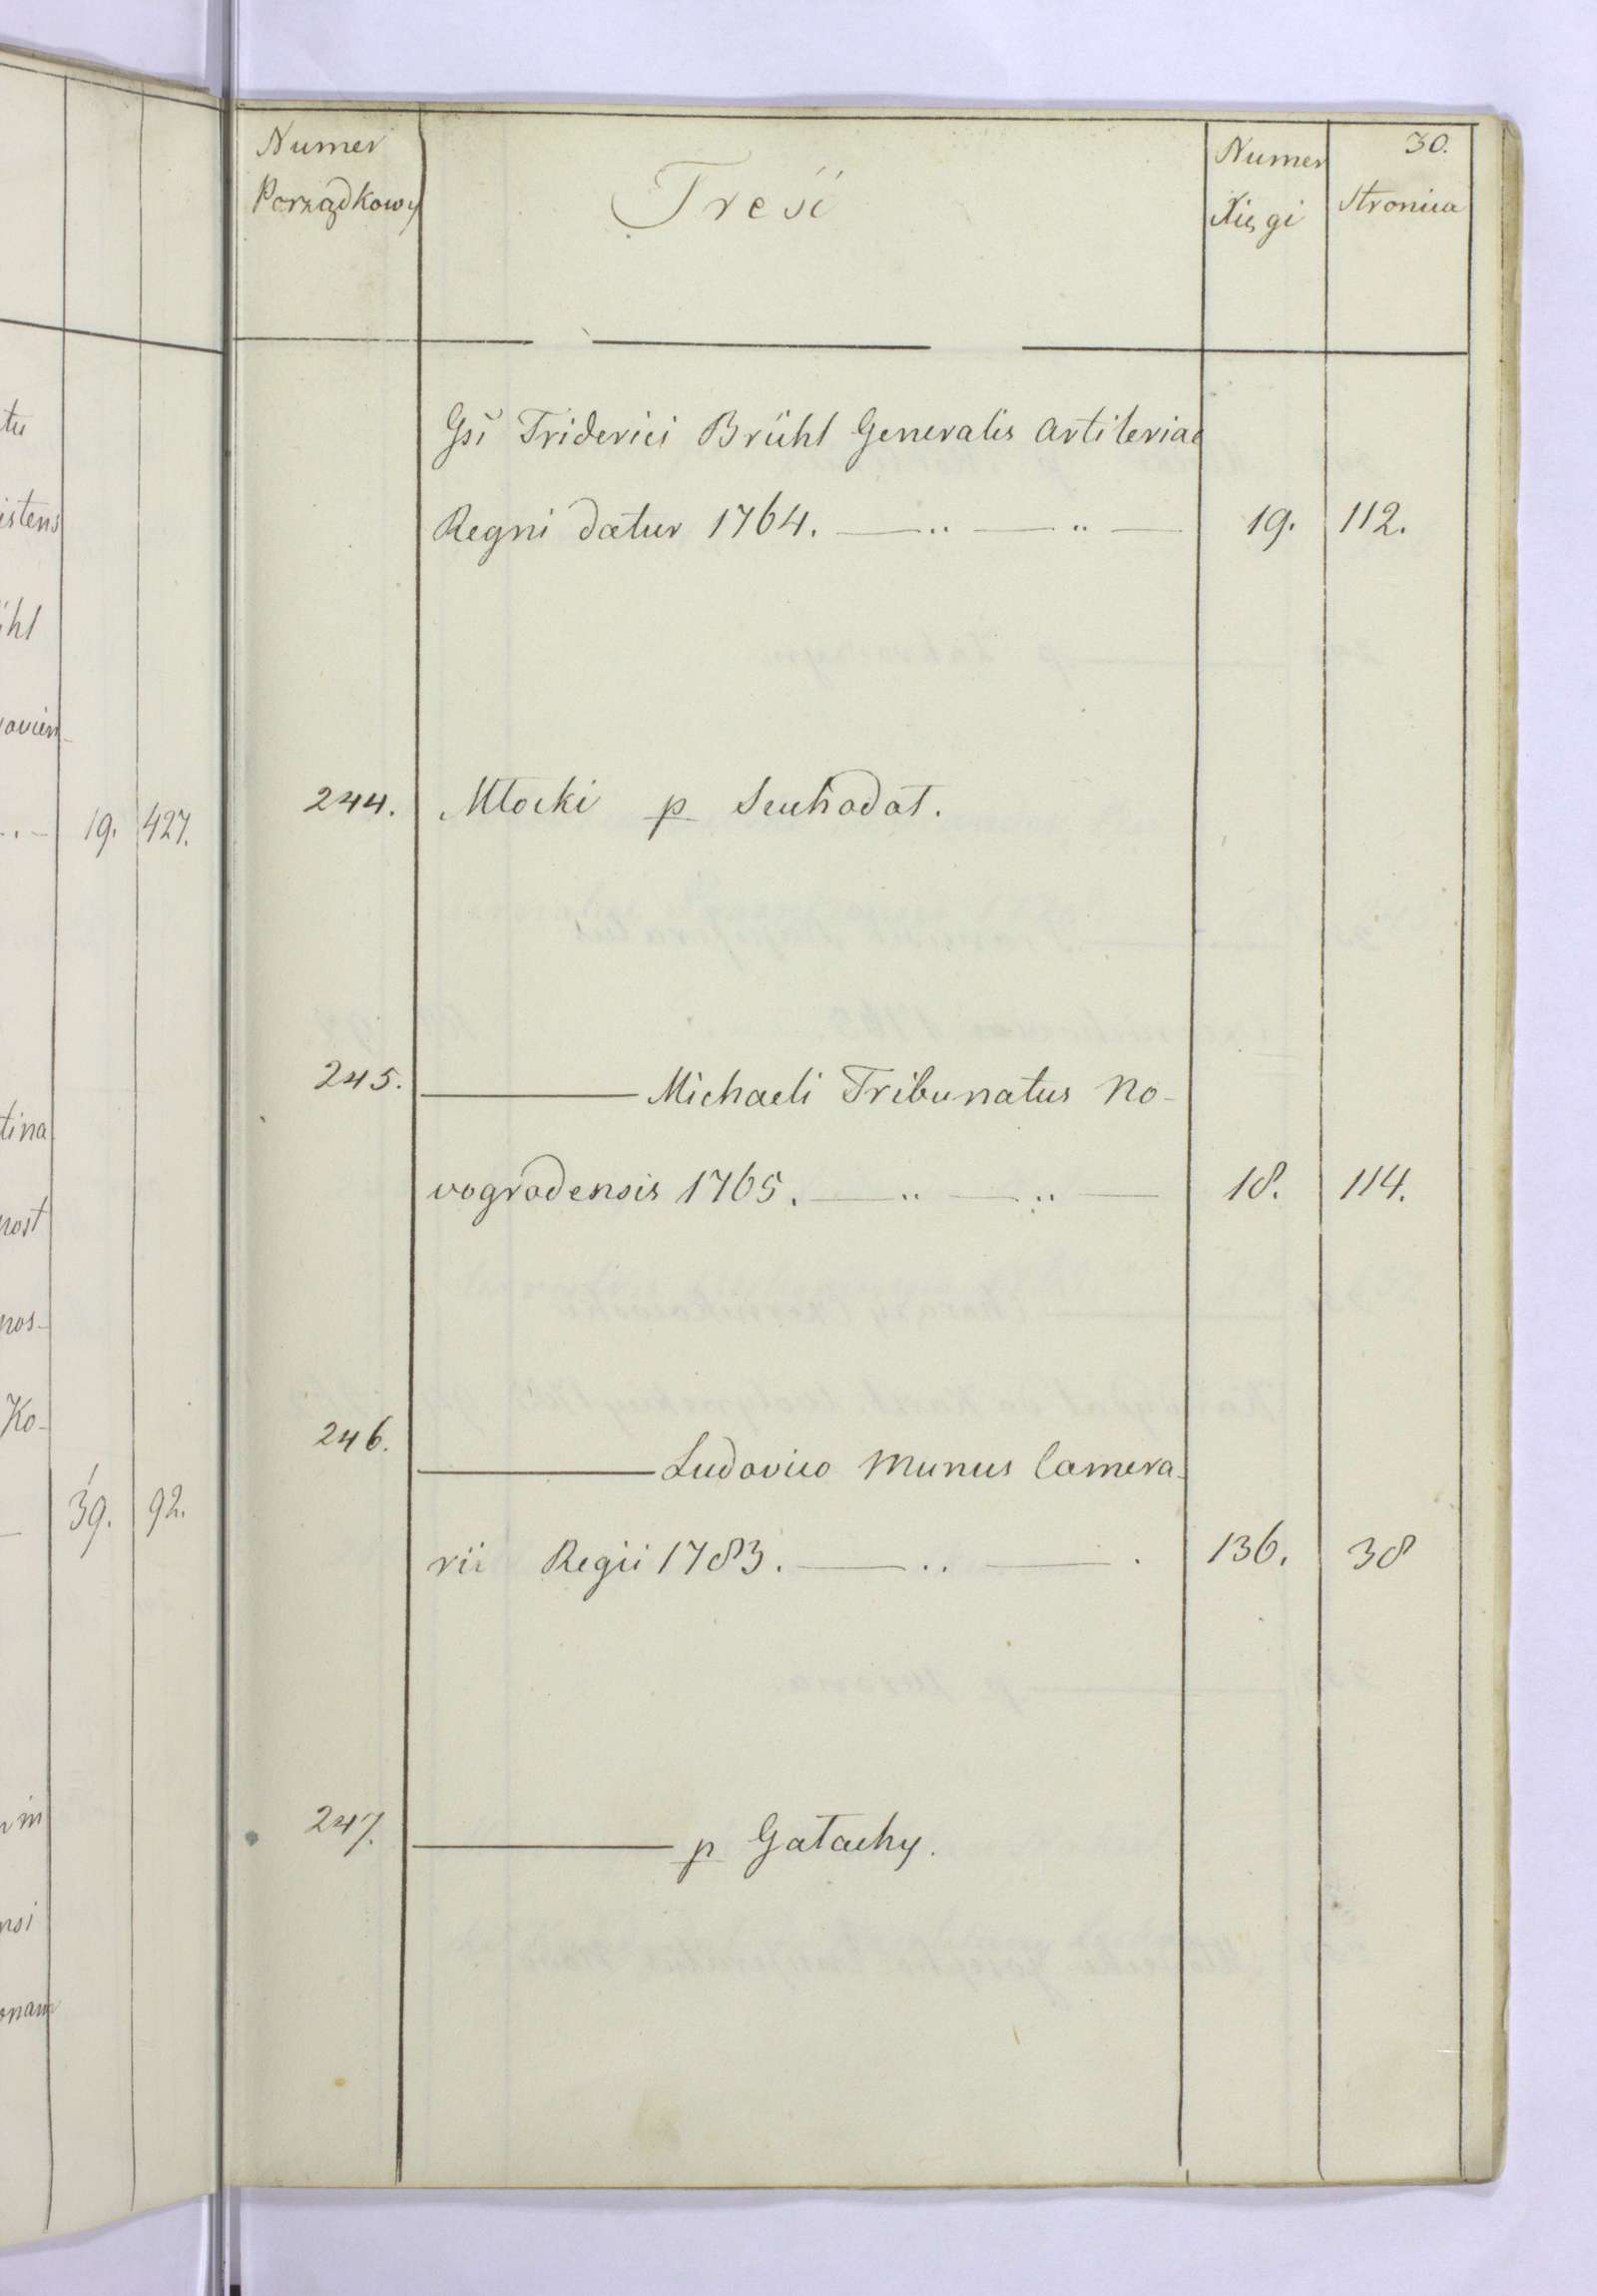 30.
Numer Porządkowy
Treść
Numer Xięgi
Stronica
Gsi Friderici Brühl Generalis Artileriae
Regni datur 1764. — .. — .. — 19. 112.
244. Młocki p Suchodół.
245. ——— Michaeli Tribunatus No-
vogrodensis 1765. — .. — .. — 18. 114.
246. ——— Ludovico Munus Camera-
rii Regii 1783. — .. — . 136. 38
247. ——— p Gałachy.
tu
istens
ühl
ovien-
.. — 19. 427.
tina
nost
nos-
Ko-
39. 92.
in
nsi
onam